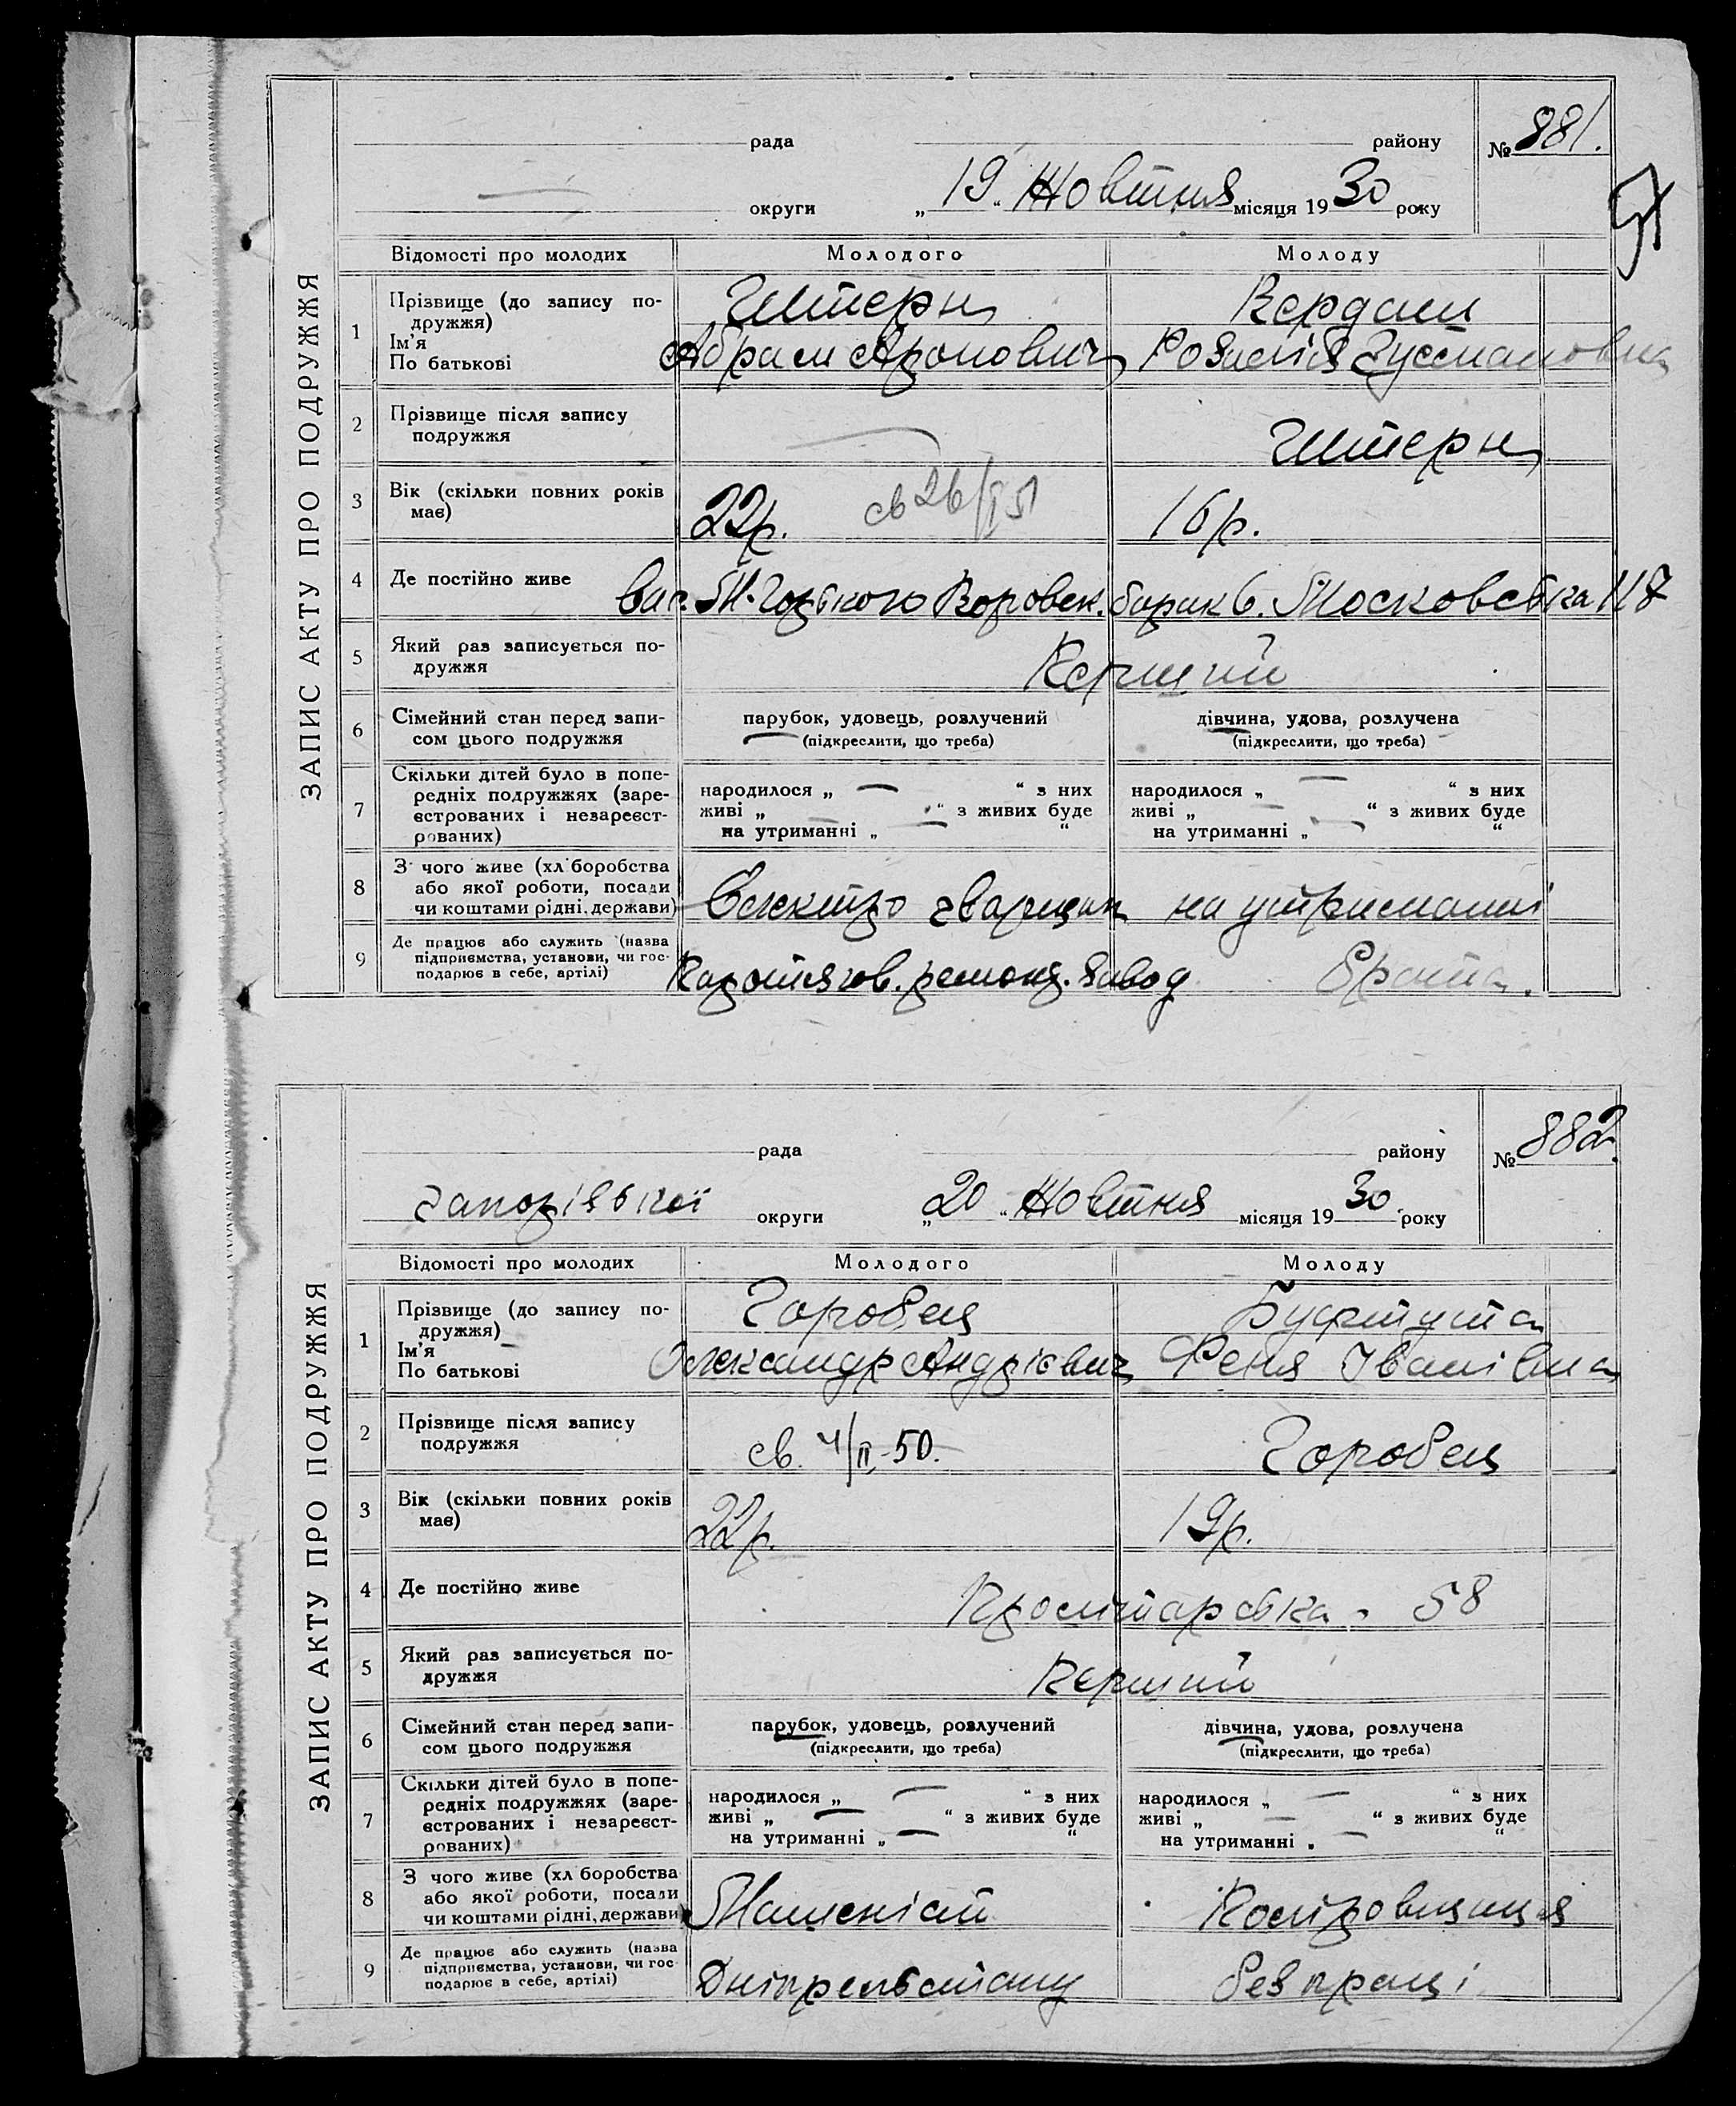 ЗАПИС АКТУ ПРО ПОДРУЖЖЯ
рада району № 881.
округи „19“ Жовтня місяця 1930 року
Відомості про молодих Молодого Молоду
1 Прізвище (до запису по-
дружжя)
Ім'я
По батькові
Штерн
Абрам Аронович
Розалія
2 Прізвище після запису
подружжя
Штерн
3 Вік (скільки повних років
має)
22р. св 26/I 51 16р.
4 Де постійно живе
вул. М.-Горького барак 6. Московська 117
5 Який раз записується по-
дружжя
Перший
6 Сімейний стан перед запи-
сом цього подружжя
парубок, удовець, розлучений
(підкреслити, що треба)
дівчина, удова, розлучена
(підкреслити, що треба)
7 Скільки дітей було в попе-
редніх подружжях (заре-
єстрованих і незареєст-
рованих)
народилося „ — “ з них
живі „ — “ з живих буде
на утриманні „ — “
народилося „ — “ з них
живі „ — “ з живих буде
на утриманні „ — “
8 З чого живе (хліборобства
або якої роботи, посади
чи коштами рідні, держави)
Електро зварщик
на утриманні
9 Де працює або служить (назва
підприємства, установи, чи гос-
подарює в себе, артілі)
Паротягов. ремонт. завод
брата.
ЗАПИС АКТУ ПРО ПОДРУЖЖЯ
рада району № 882.
Запорізької округи „20“ Жовтня місяця 1930 року
Відомості про молодих Молодого Молоду
1 Прізвище (до запису по-
дружжя)
Ім'я
По батькові
Горобец
Олександр Андрієвич
Феня Іванівна
2 Прізвище після запису
подружжя
св. 4/II-50.
Горобец
3 Вік (скільки повних років
має)
22р. 19р.
4 Де постійно живе
Пролітарська - 58
5 Який раз записується по-
дружжя
Перший
6 Сімейний стан перед запи-
сом цього подружжя
парубок, удовець, розлучений
(підкреслити, що треба)
дівчина, удова, розлучена
(підкреслити, що треба)
7 Скільки дітей було в попе-
редніх подружжях (заре-
єстрованих і незареєст-
рованих)
народилося „ — “ з них
живі „ — “ з живих буде
на утриманні „ — “
народилося „ — “ з них
живі „ — “ з живих буде
на утриманні „ — “
8 З чого живе (хліборобства
або якої роботи, посади
чи коштами рідні, держави
Машеніст
9 Де працює або служить (назва
підприємства, установи, чи гос-
подарює в себе, артілі)
Дніпрельстану
без праці